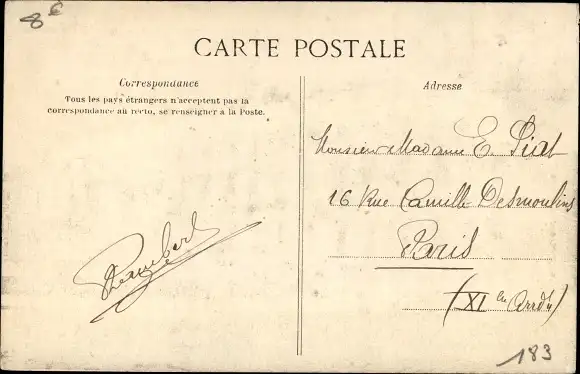 8€
CARTE POSTALE
Correspondance
Tous les pays étrangers n'acceptent pas la
correspondance au recto, se renseigner à la Poste.
Adresse
Monsieur Madame E. Piat
16 Rue Camille Desmoulins
Paris
(XI en Arrdt)
183